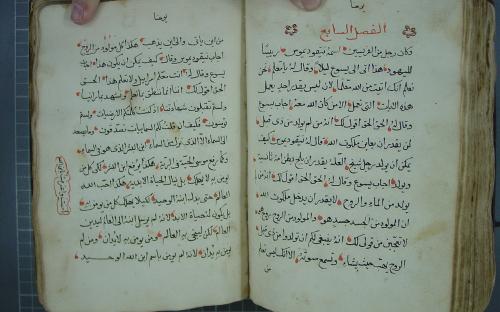 يوحنا
الفصل السابع
كان رجل من الفريسيين اسمه نيقوديموس رييسًا
لليهود هذا اتى الى يسوع ليلاً وقال له يا معلم نحن
نعلم انك اتيت من الله معلمًا لان ليس يقدر احد يعمل
هذه الايات التي تعمل الا من كان الله معه اجاب يسوع
وقال له الحق الحق اقول لك انه من لم يولد من ذي قبل
لن يقدر ان يعاين ملكوت الله قال له نيقوديموس كيف
يمكن ان يولد رجل شيخ العله يقدر ان يلج بطن امه ثانية
ويولد اجاب يسوع وقال له الحق الحق اقول لك ان لم
يولد من الماء والروح لا يقدر ان يدخل ملكوت الله
ان المولود من الجسد جسد هو والمولود من الروح روح هو
لا تتعجبن من قولي لك انه ينبغي لكم ان تولدوا من ذي قبل
الروح يهب حيث يشاء وتسمع صوته الا انك ليس تعلم
من
يوحنا
من اين ياتي والى اين يذهب هكذا كل مولود من الروح
اجاب نيقوديموس وقال كيف يمكن ان يكون هذا اجاب
يسوع وقال له انت معلم اسراييل ولا تعلم هذا الحق
الحق اقول لك اننا انما ننطق بما نعلم ونشهد بما راينا
ولستم تقبلون شهادتنا اذ كنت كلمتكم الارضيات ولستم
تومنون فكيف ان قلت لكم السماييات تصدقون وما صعد
الى السماء الا الذي نزل من السماء ابن البشر الذي هو في السماء
وكما رفع موسى الحية في البرية هكذا يرفع ابن البشر لكي كل من
يومن به لا يهلك بل ينال الحياة الابدية هكذا احب الله
العالم حتى بذل ابنه الوحيد لكيلا يهلك كل من يومن به
بل يكون له حياة الابد لانه لم يرسل الله ابنه الى العالم ليدين
العالم لكن لينجي به العالم ومن يومن به لا يدان ومن لم
يومن به يدان لانه لم يومن باسم ابن الله الوحيد